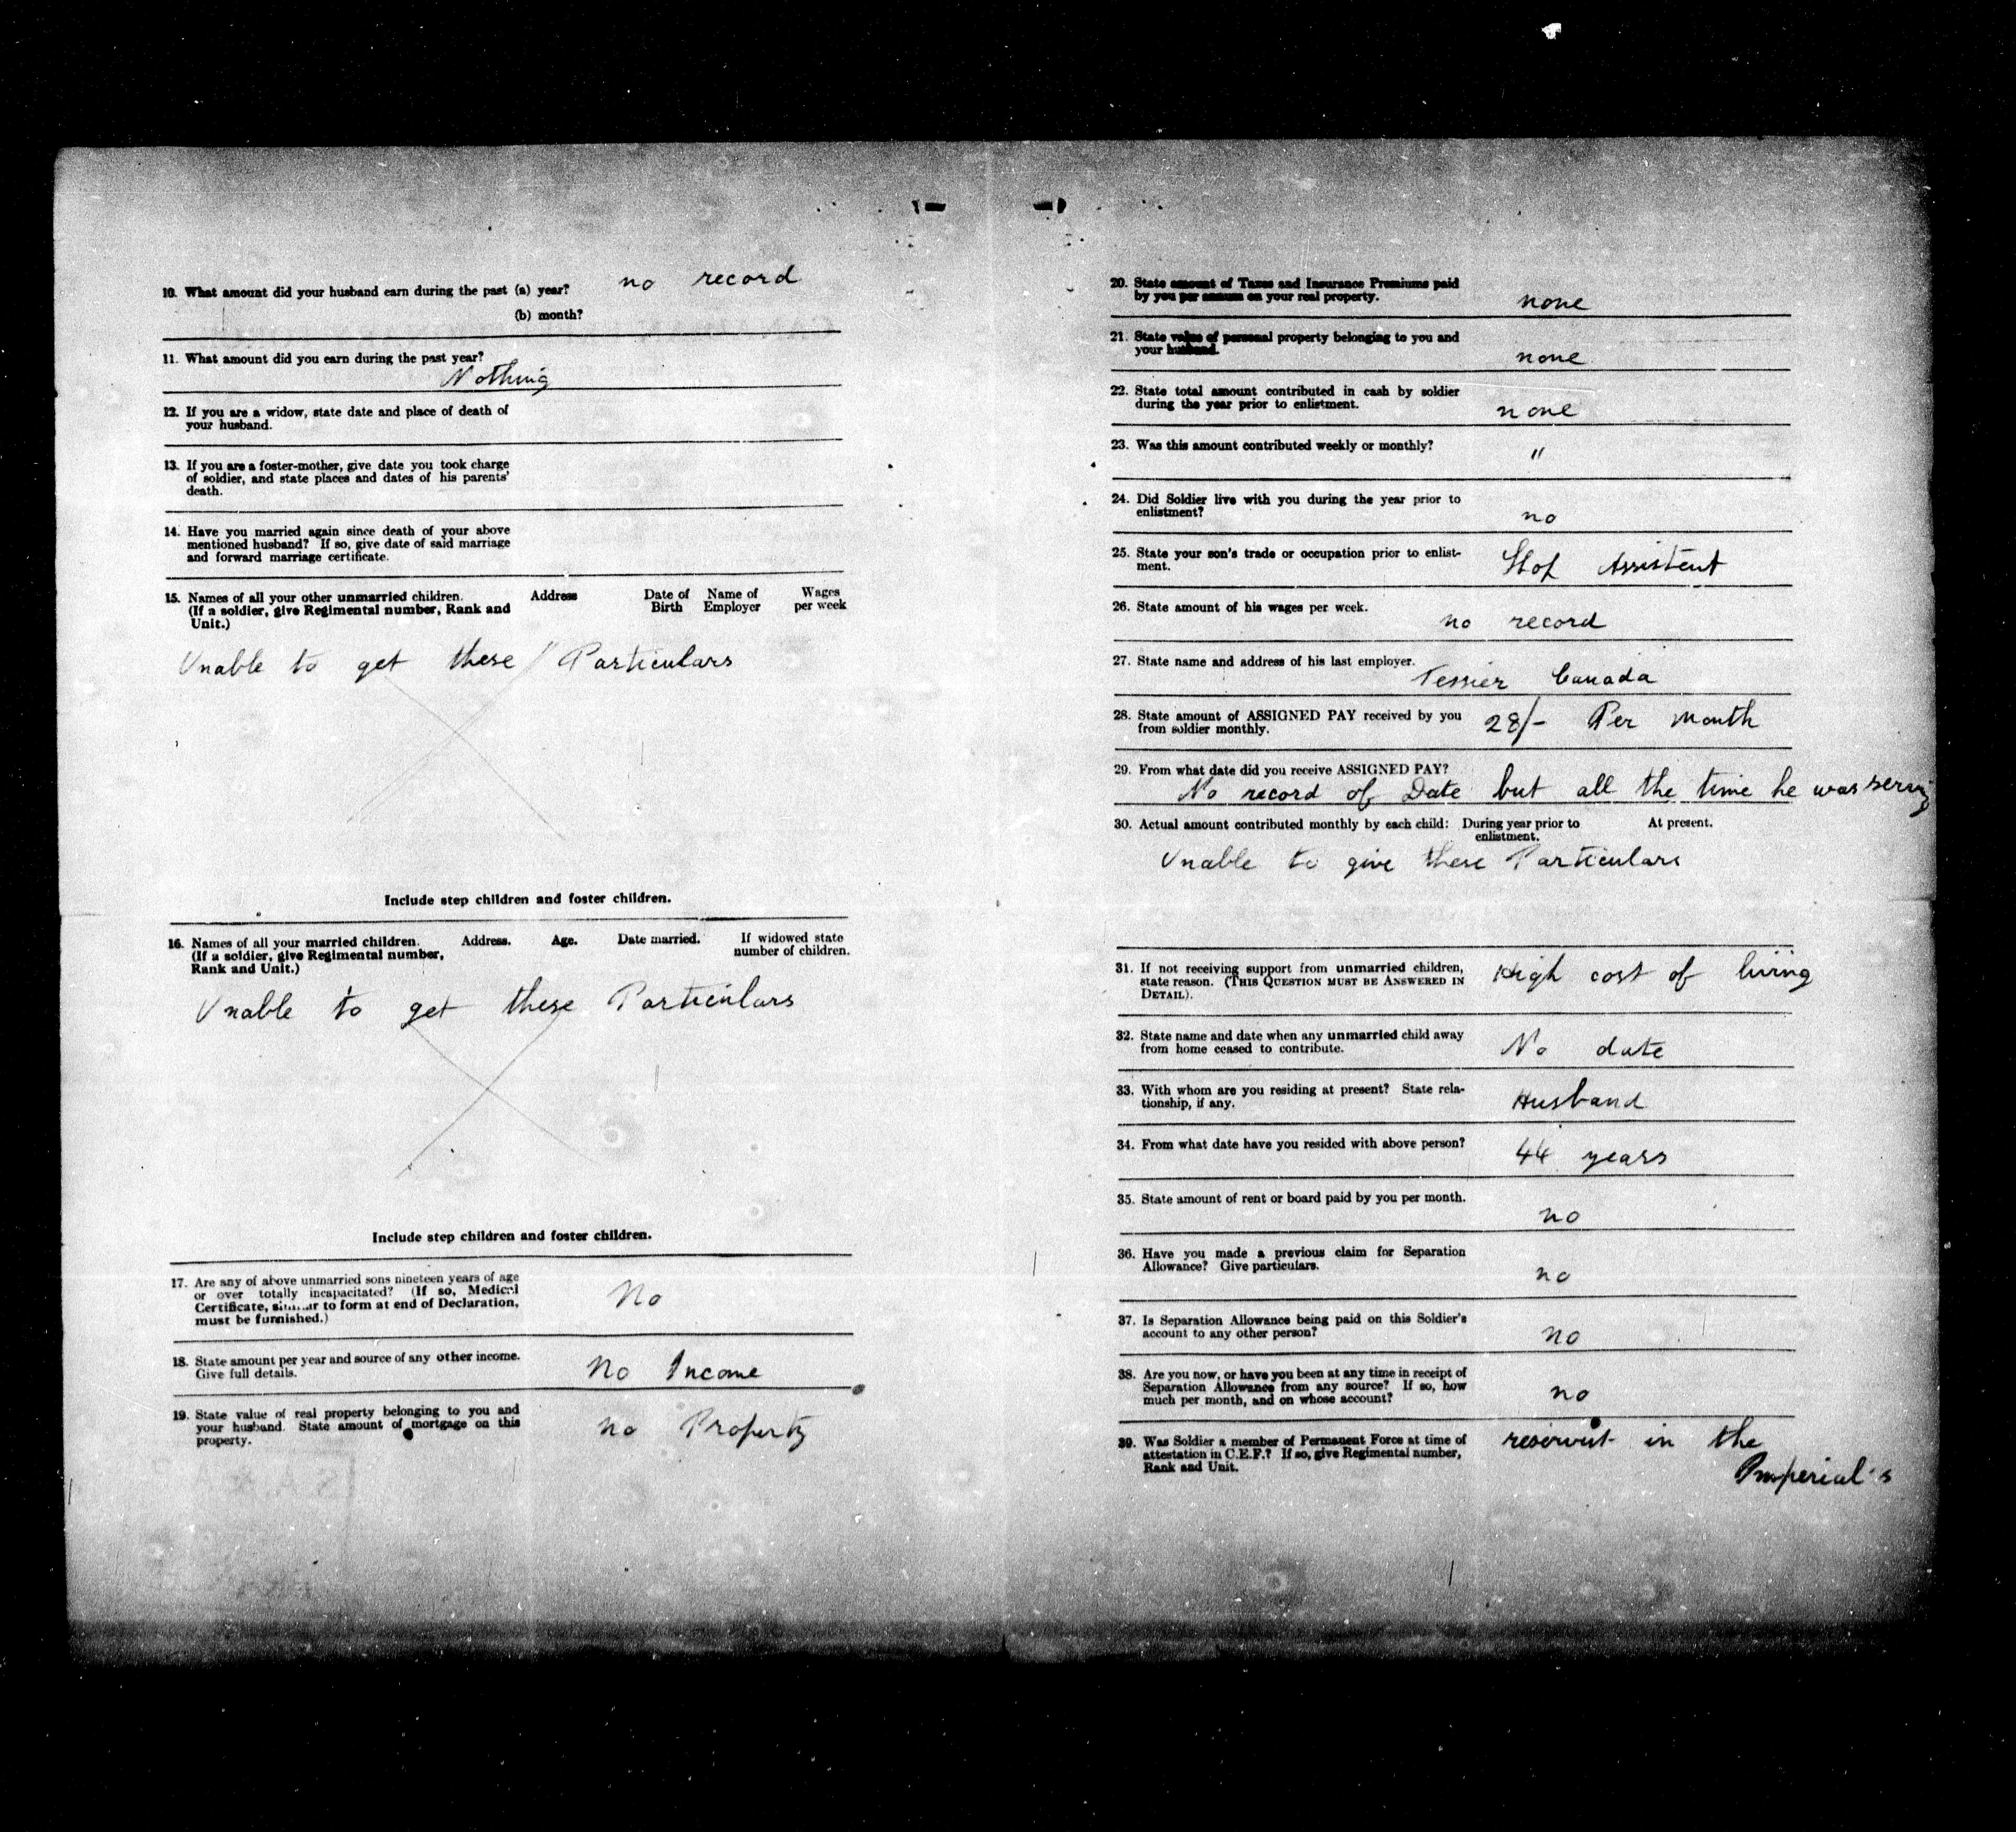 10. What amount did your husband earn during the past (a) year? no record
(b) month?
11. What amount did you earn during the past year?
Nothing
12. If you are a widow, state date and place of death of
your husband.
13. If you are a foster-mother, give date you took charge
of soldier, and state places and dates of his parents'
death.
14. Have you married again since death of your above
mentioned husband? If so, give date of said marriage
and forward marriage certificate.
15. Names of all your other unmarried children. Address Date of Name of Wages
(If a soldier, give Regimental number, Rank and Birth Employer per week
Unit.)
Unable to get these Particulars
Include step children and foster children.
16. Names of all your married children. Address. Age. Date married. If widowed state
(If a soldier, give Regimental number, number of children.
Rank and Unit.)
Unable to get these Particulars
Include step children and foster children.
17. Are any of above unmarried sons nineteen years of age
or over totally incapacitated? (If so, Medical
Certificate, similar to form at end of Declaration, No
must be furnished.)
18. State amount per year and source of any other income.
Give full details. No Income
19. State value of real property belonging to you and
your husband. State amount of mortgage on this no Property
property.
20. State amount of Taxes and Insurance Premiums paid
by you per annum on your real property. none
21. State value of personal property belonging to you and
your husband. none
22. State total amount contributed in cash by soldier
during the year prior to enlistment. none
23. Was this amount contributed weekly or monthly? "
24. Did Soldier live with you during the year prior to
enlistment? no
25. State your son's trade or occupation prior to enlist-
ment. Shop Assistent
26. State amount of his wages per week.
no record
27. State name and address of his last employer.
Tessier Canada
28. State amount of ASSIGNED PAY received by you 28/- Per Month
from soldier monthly.
29. From what date did you receive ASSIGNED PAY?
No record of Date but all the time he was serving
30. Actual amount contributed monthly by each child: During year prior to At present.
enlistment.
Unable to give these Particulars
31. If not receiving support from unmarried children, High cost of living
state reason. (THIS QUESTION MUST BE ANSWERED IN
DETAIL).
32. State name and date when any unmarried child away
from home ceased to contribute. No date
33. With whom are you residing at present? State rela-
tionship, if any. Husband
34. From what date have you resided with above person?
44 years
35. State amount of rent or board paid by you per month.
no
36. Have you made a previous claim for Separation
Allowance? Give particulars. no
37. Is Separation Allowance being paid on this Soldier's
account to any other person? no
38. Are you now, or have you been at any time in receipt of
Separation Allowance from any source? If so, how
much per month, and on whose account? no
39. Was Soldier a member of Permanent Force at time of reservist in the
attestation in C.E.F.? If so, give Regimental number, Imperial's
Rank and Unit.